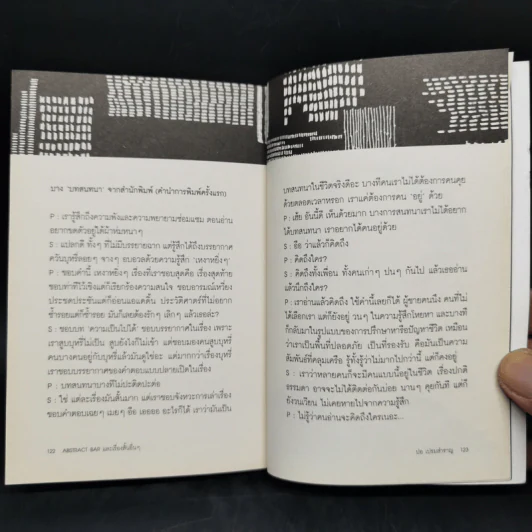 บาง 'บทสนทนา' จากสำนักพิมพ์ (คำนำการพิมพ์ครั้งแรก)
P : เรารู้สึกถึงความพังและความพยายามซ่อมแซม ตอนอ่าน
อยากขดตัวอยู่ใต้ผ้าห่มหนาๆ
S : แปลกดี ทั้งๆ ที่ไม่มีบรรยายฉาก แต่รู้สึกได้ถึงบรรยากาศ
ควันบุหรี่ลอยๆ จางๆ อบอวลด้วยความรู้สึก 'เหงาอึ้งๆ'
P : ชอบคำนี้ เหงาอึ้งๆ เรื่องที่เราชอบสุดคือ เรื่องสุดท้าย
ชอบท่าทีไว้เชิงแต่ก็เรียกร้องความสนใจ ชอบอารมณ์เหวี่ยง
ประชดประชันแต่ก็อ่อนแอแตกตื้น ประวัติศาสตร์ที่ไม่อยาก
ซ้ำรอยแต่ก็ซ้ำรอย มันก็เลยต้องรักๆ เลิกๆ แล้วเธอล่ะ?
S : ชอบบท 'ความเป็นไปได้' ชอบบรรยากาศในเรื่อง เพราะ
เราสูบบุหรี่ไม่เป็น สูบยังไงก็ไม่เข้า แต่ชอบมองคนสูบบุหรี่
คนบางคนอยู่กับบุหรี่แล้วมันดูใช่อะ แต่มากกว่าเรื่องบุหรี่
เราชอบบรรยากาศของคำตอบแบบปลายเปิดในเรื่อง
P : บทสนทนาบางทีไม่ปะติดปะต่อ
S : ใช่ แต่ละเรื่องมันสั้นมาก แต่เราชอบจังหวะการเล่าเรื่อง
ชอบคำตอบเฉยๆ เมยๆ อือ เอออ อะไรก็ได้ เราว่ามันเป็น
122 ABSTRACT BAR และเรื่องสั้นอื่นๆ
บทสนทนาในชีวิตจริงดีอะ บางทีคนเราไม่ได้ต้องการคนคุย
ด้วยตลอดเวลาหรอก เราแค่ต้องการคน 'อยู่' ด้วย
P : เฮ้ย อันนี้ดี เห็นด้วยมาก บางการสนทนาเราไม่ได้อยาก
ได้บทสนทนา เราอยากได้คนอยู่ด้วย
S : อือ ว่าแล้วก็คิดถึง
P : คิดถึงใคร?
S : คิดถึงทั้งเพื่อน ทั้งคนเก่าๆ ปนๆ กันไป แล้วเธออ่าน
แล้วนึกถึงใคร?
P : เราอ่านแล้วคิดถึง ใช้คำนี้เลยก็ได้ ผู้ชายคนนึง คนที่ไม่
ได้เลือกเรา แต่ก็ยังอยู่ วนๆ ในความรู้สึกโหยหา และบางที
ก็กลับมาในรูปแบบของการปรึกษาหารือปัญหาชีวิต เหมือน
ว่าเราเป็นพื้นที่ปลอดภัย เป็นที่รองรับ คือมันเป็นความ
สัมพันธ์ที่คลุมเครือ รู้ทั้งรู้ว่าไม่มากไปกว่านี้ แต่ก็คงอยู่
S : เราว่าหลายคนก็จะมีคนแบบนี้อยู่ในชีวิต เรื่องปกติ
ธรรมดา อาจจะไม่ได้ติดต่อกันบ่อย นานๆ คุยกันที แต่ก็
ยังวนเวียน ไม่เคยหายไปจากความรู้สึก
P : ไม่รู้ว่าคนอ่านจะคิดถึงใครเนอะ...
123